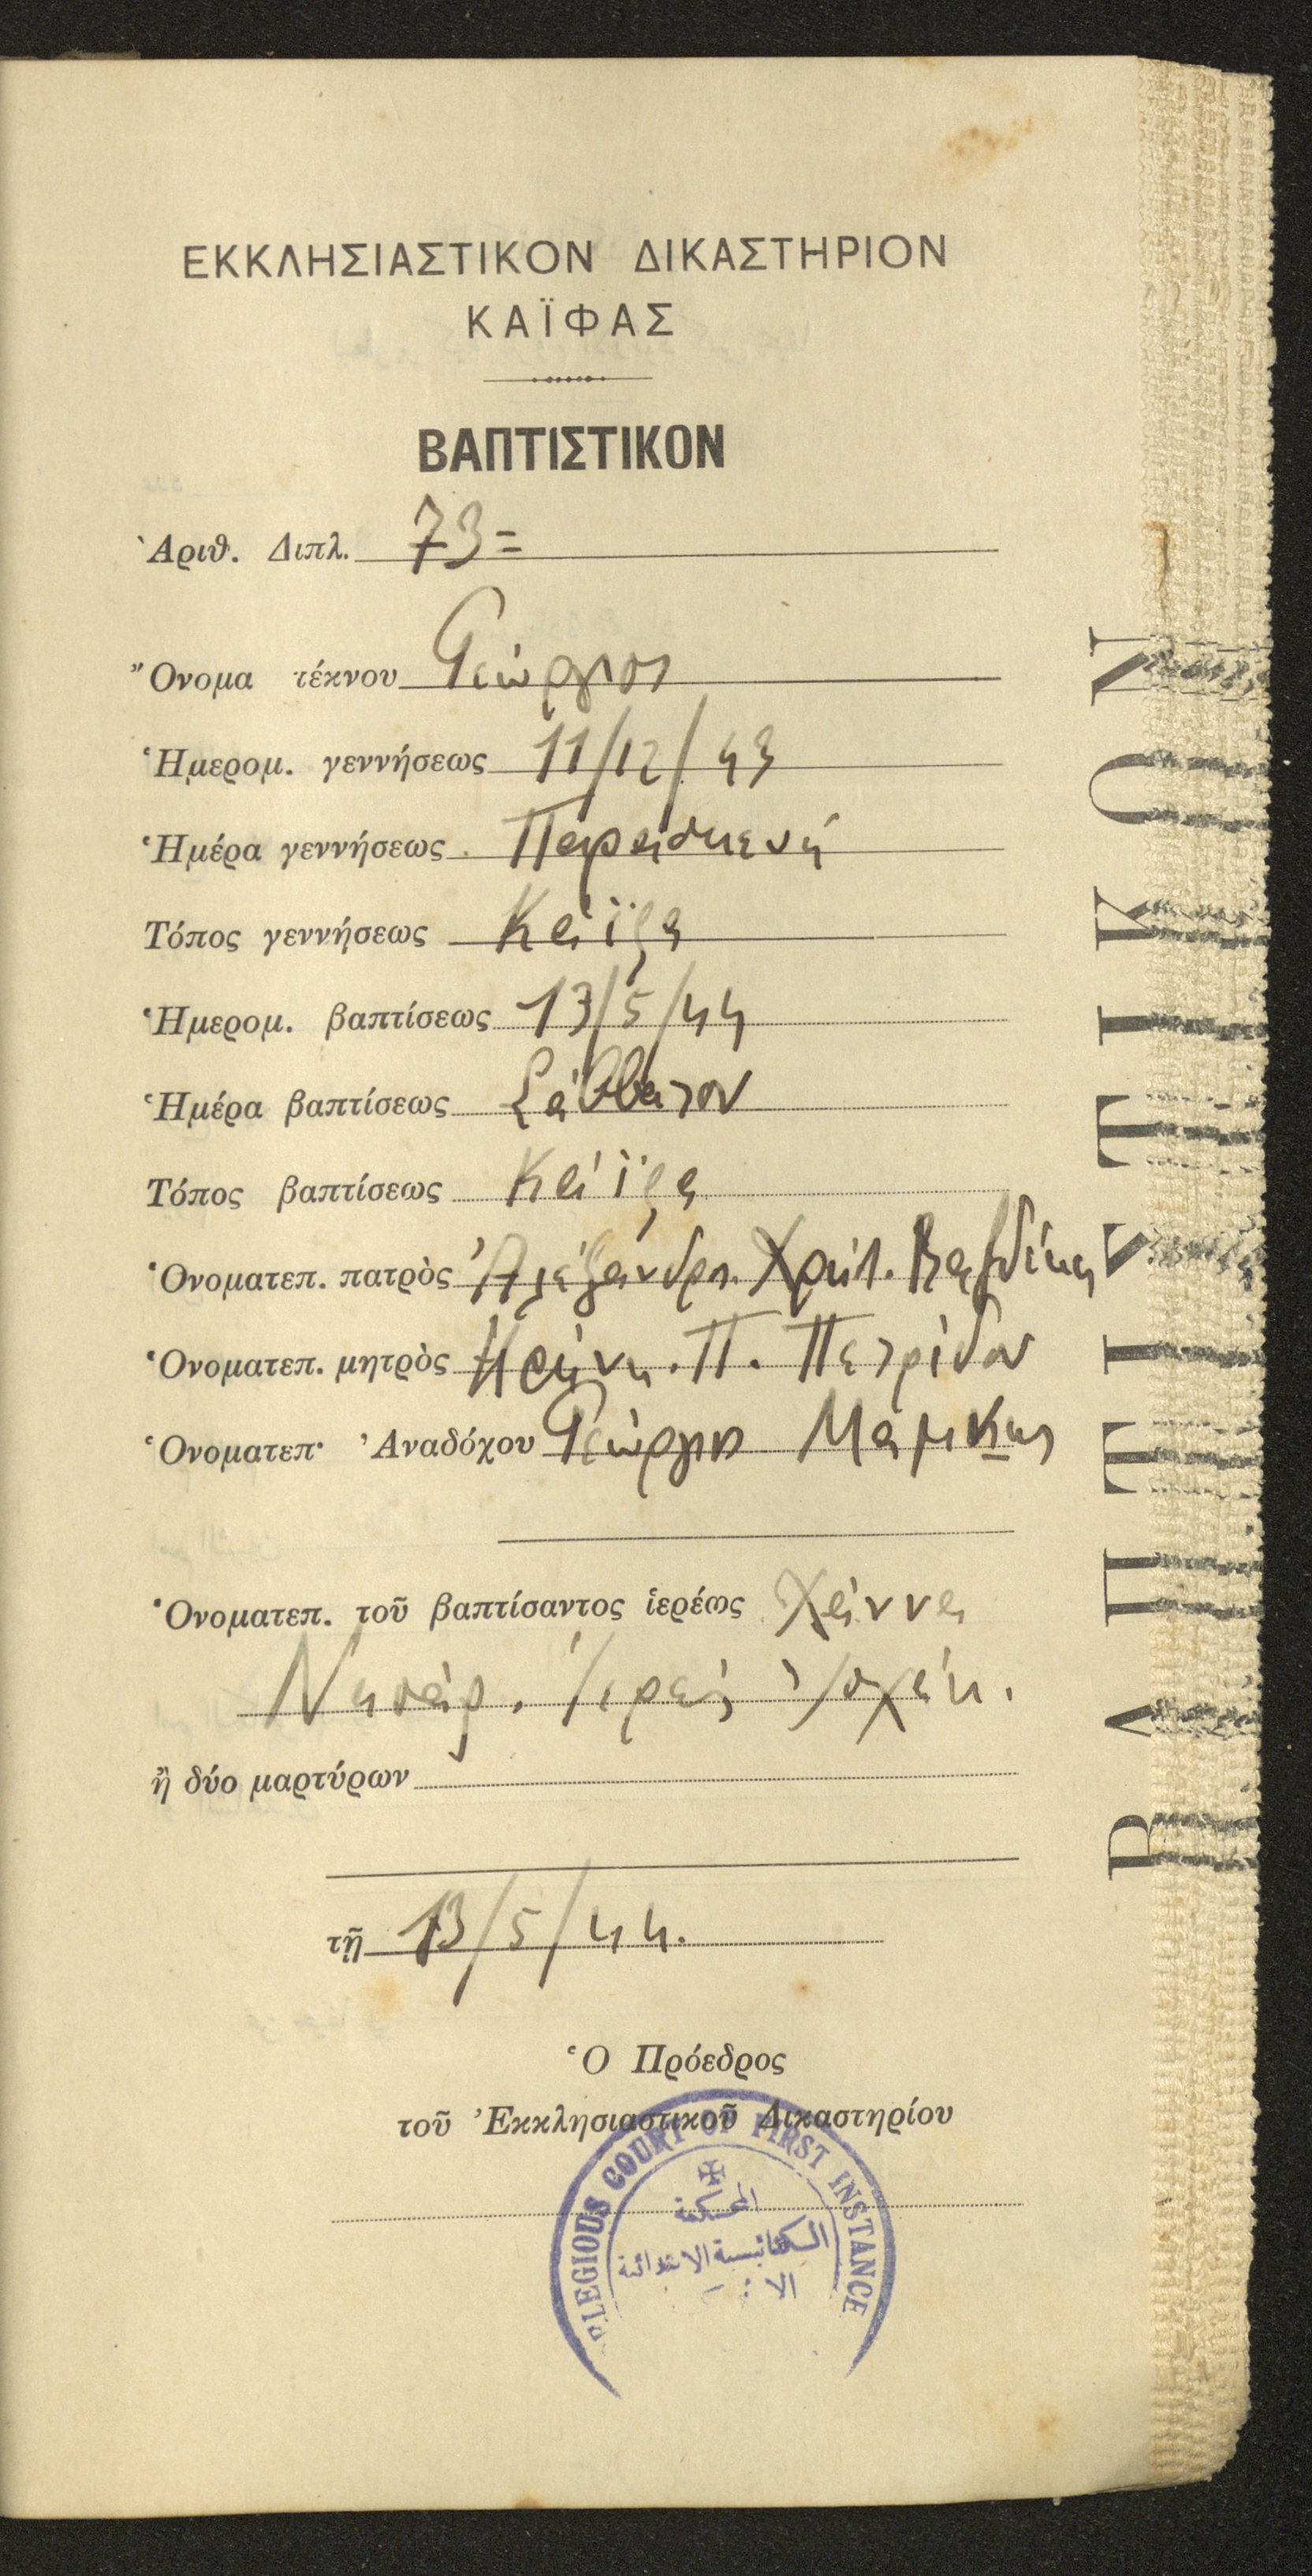 ΕΚΚΛΗΣΙΑΣΤΙΚΟΝ ΔΙΚΑΣΤΗΡΙΟΝ
ΚΑΪΦΑΣ
ΒΑΠΤΙΣΤΙΚΟΝ
Ἀριθ. Διπλ. 73=
Ὄνομα τέκνου Γεώργιος
Ἡμερομ. γεννήσεως 11/12/43
Ἡμέρα γεννήσεως Παρασκευή
Τόπος γεννήσεως Κάϊφα
Ἡμερομ. βαπτίσεως 13/5/44
Ἡμέρα βαπτίσεως Σάββατον
Τόπος βαπτίσεως Κάϊφα
Ὀνοματεπ. πατρὸς Ἀλέξανδρος
Ὀνοματεπ. μητρὸς Π. Πετρίδου
Ὀνοματεπ· Ἀναδόχου Γεώργιος
Ὀνοματεπ. τοῦ βαπτίσαντος ἱερέως Χάννα
ἢ δύο μαρτύρων
τῇ 13/5/44.
Ὁ Πρόεδρος
τοῦ Ἐκκλησιαστικοῦ Δικαστηρίου
COURT OF FIRST INSTANCE
المحكمة
الكنائسية الابتدائية
ΒΑΠΤΙΣΤΙΚΟΝ